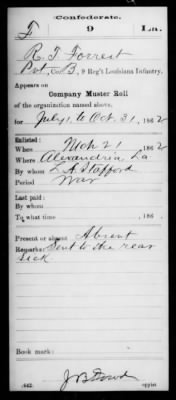 Confederate.
F 9 La.
R. T. Forrest
Pvt, Co. B, 9 Reg't Louisiana Infantry.
Appears on
Company Muster Roll
of the organization named above,
for July 1, to Oct. 31, 1862
Enlisted:
When Mch 21 1862
Where Alexandria, La
By whom L. A. Stafford
Period War
Last paid:
By whom
To what time , 186 .
Present or absent Absent
Remarks: Sent to the rear
sick
Book mark:
(642)
Copyist.